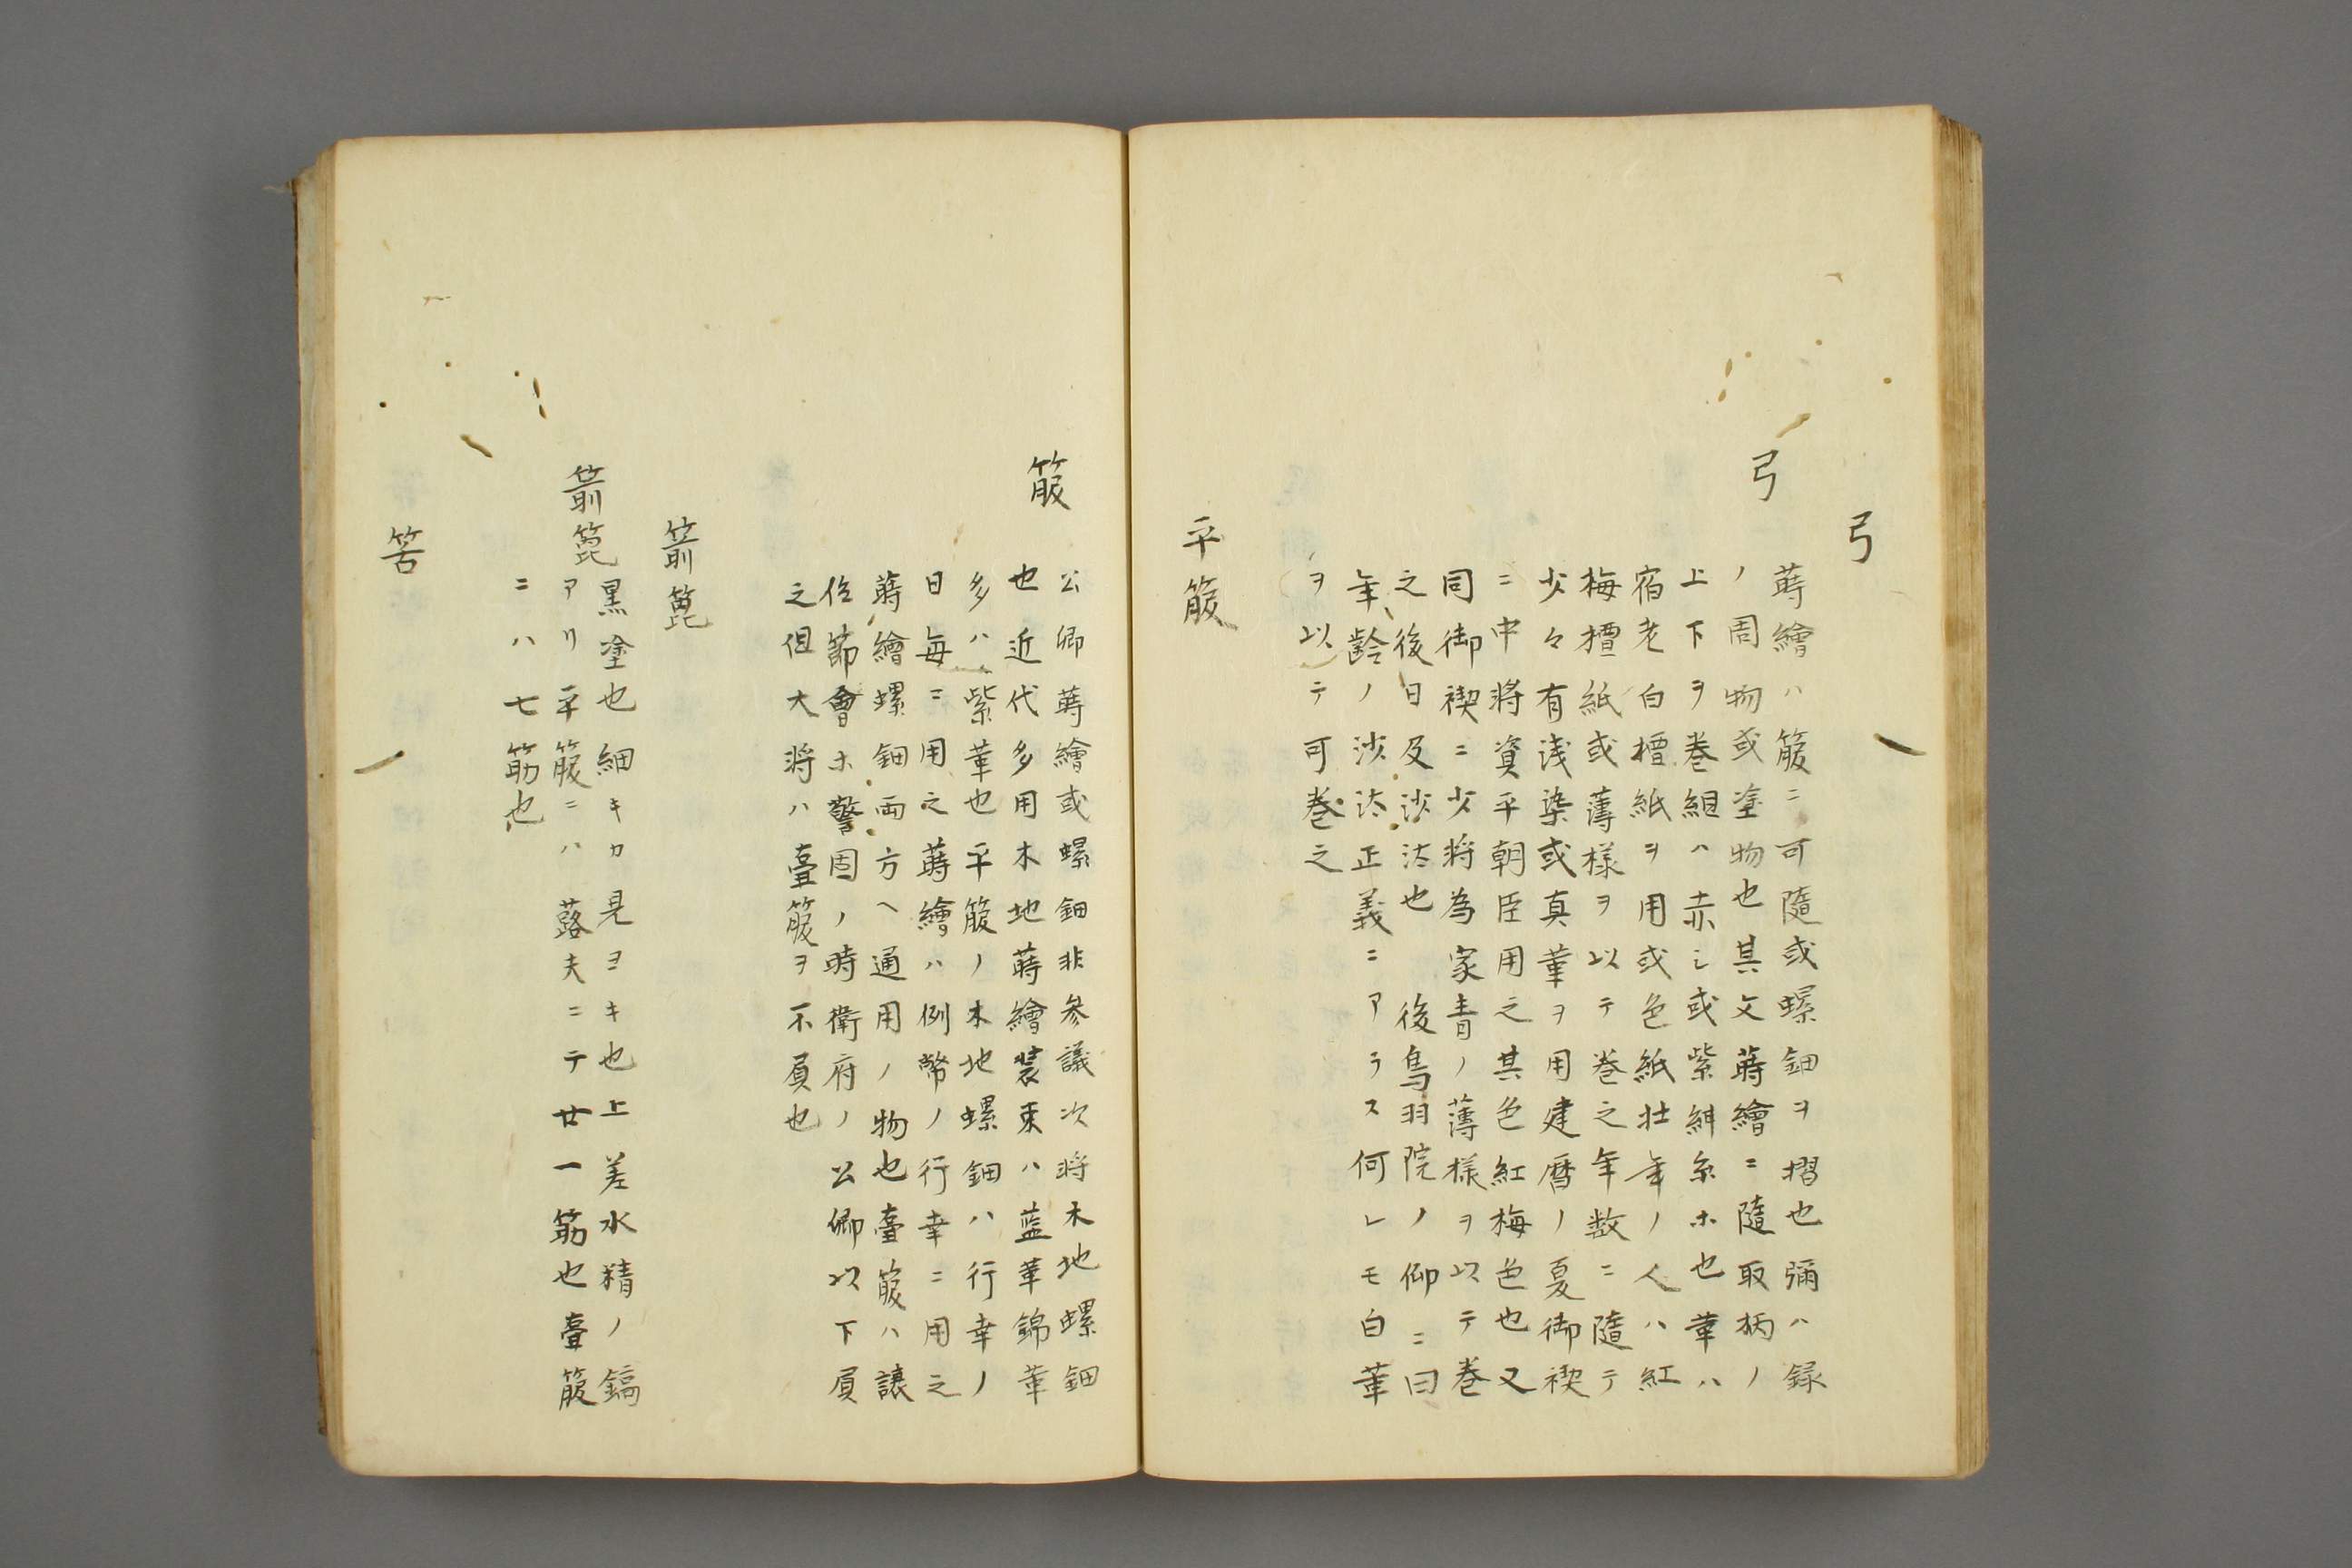 弓
弓
蒔繪ハ箙ニ可隨或螺鈿ヲ摺也彌ハ録
ノ周物或塗物也其文蒔繪ニ隨取柄ノ
上下ヲ巻組ハ赤シ或紫絆糸ホ也革ハ
宿老白檀紙ヲ用或色紙壮年ノ人ハ紅
梅檀紙或薄様ヲ以テ巻之年数ニ隨テ
少々有浅染或真革ヲ用建暦ノ夏御禊
ニ中将資平朝臣用之其色紅梅色也又
同御禊ニ少将為家青ノ薄様ヲ以テ巻
之後日及沙汰也 後鳥羽院ノ仰ニ曰
年齢ノ沙汰正義ニアラス何レモ白革
ヲ以テ可巻之
平箙
箙
公卿蒔繪或螺鈿非参議次将木地螺鈿
也近代多用木地蒔繪装束ハ藍革錦革
多ハ紫革也平箙ノ木地螺鈿ハ行幸ノ
日毎ニ用之蒔繪ハ例幣ノ行幸ニ用之
蒔繪螺鈿両方ヘ通用ノ物也臺箙ハ譲
位節會ホ警固ノ時衛府ノ公卿以下負
之但大将ハ臺箙ヲ不負也
箭箆
箭箆
黒塗也細キカ見ヨキ也上差水精ノ鏑
アリ平箙ニハ蕗夫ニテ廿一筋也臺箙
ニハ七筋也
筈